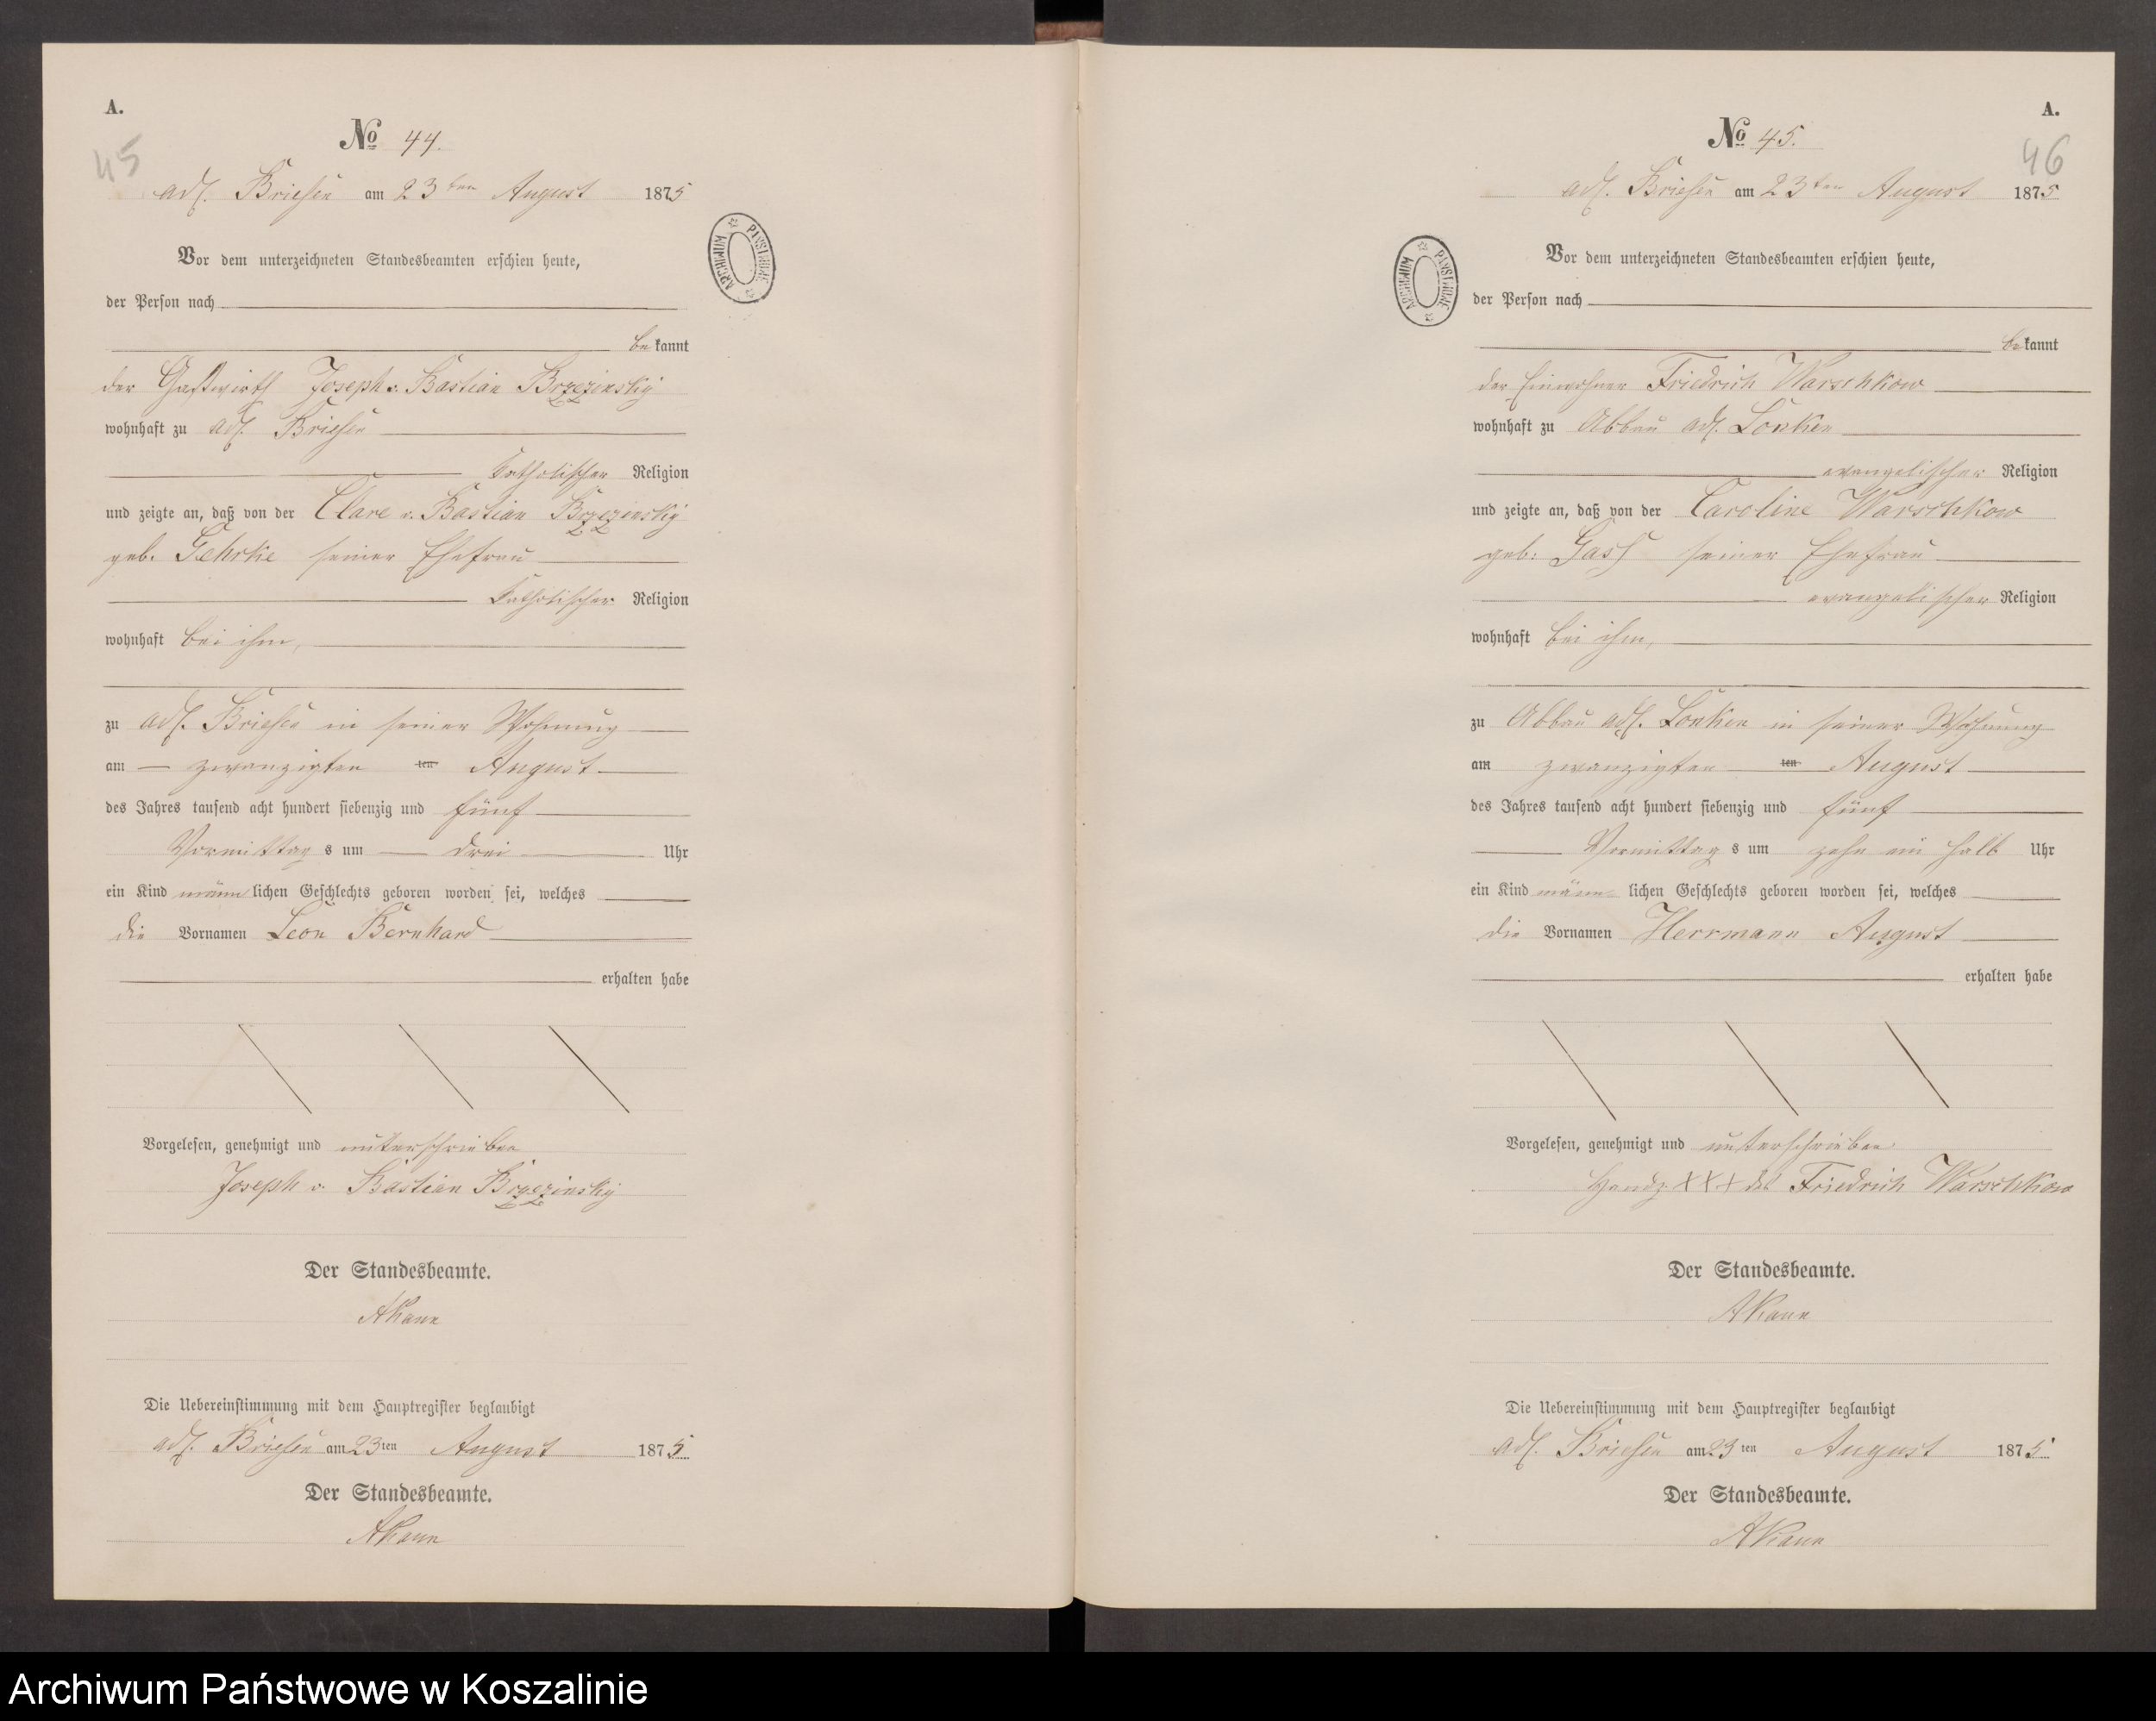 A.
45
№ 44.
adl. Briesen am 23ten August 1875
Vor dem unterzeichneten Standesbeamten erschien heute,
der Person nach
bekannt
der Gastwirth Joseph v. Bastian Brzezinsky
wohnhaft zu adl. Briesen
Katholischer Religion
und zeigte an, daß von der Clara v. Bastian Brzezinsky
geb. Gehrke seiner Ehefrau
Katholischer Religion
wohnhaft bei ihm,
zu adl. Briesen in seiner Wohnung
am zwanzigten ten August
des Jahres tausend acht hundert siebenzig und fünf
Vormittags um drei Uhr
ein Kind männlichen Geschlechts geboren worden sei, welches
die Vornamen Leon Bernhard
erhalten habe
Vorgelesen, genehmigt und unterschrieben
Joseph v. Bastian Brzezinsky
Der Standesbeamte.
Die Uebereinstimmung mit dem Hauptregister beglaubigt
adl. Briesen am 23ten August 1875.
Der Standesbeamte.
ARCHIWUM PAŃSTWOWE
A.
46
№ 45.
adl. Briesen am 23ten August 1875
Vor dem unterzeichneten Standesbeamten erschien heute,
der Person nach
bekannt
der Einwohner Friedrich Warschkow
wohnhaft zu Abbau adl. Lonken
evangelischer Religion
und zeigte an, daß von der Caroline Warschkow
geb: Gass seiner Ehefrau
evangelischer Religion
wohnhaft bei ihm,
zu Abbau adl. Lonken in seiner Wohnung
am zwanzigten ten August
des Jahres tausend acht hundert siebenzig und fünf
Vormittags um zehn ein halb Uhr
ein Kind männ- lichen Geschlechts geboren worden sei, welches
die Vornamen Herrmann August
erhalten habe
Vorgelesen, genehmigt und unterschrieben
Handz. XXX des Friedrich Warschkow
Der Standesbeamte.
Die Uebereinstimmung mit dem Hauptregister beglaubigt
adl. Briesen am 23ten August 1875.
Der Standesbeamte.
ARCHIWUM PAŃSTWOWE
Archiwum Państwowe w Koszalinie